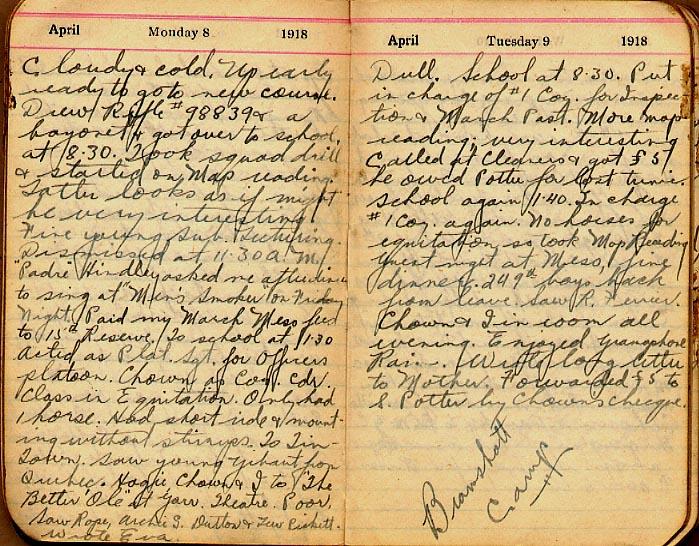 April Monday 8 1918
Cloudy & cold. Up early
ready to go to new course.
Drew Rifle #98839 & a
bayonet & got over to school
at 8:30. Took squad drill
& started on Map reading.
Latter looks as if might
be very interesting
Fine young Sub. lecturing.
Dismissed at 11.30 A.M.
"Padre" Hindley asked me after dinner
to sing at "Men's Smoker" on Friday
Night. Paid my March Mess fees
to 15th Reserve. To school at 1:30
Acted as Plat. Sgt. for Officers
platoon. Chown as Coy. Cdr.
Class in Equitation. Only had
1 horse. Had short ride & mount-
ing without stirrups. To Tin-
Town. Saw young from
Quebec. Hogue Chown & I to "The
Better 'Ole" at Garr. Theatre. Poor.
Saw Rope, Archie S. Dutton & Lew Pickett.
Wrote Eva.
April Tuesday 9 1918
Dull. School at 8.30. Put
in charge of #1 Coy. for Inspec-
tion & March Past. More map
reading, very interesting
Called at Cleaners & got £5
he owed Potter for lost tunic.
School again 1:40. In charge
#1 Coy. again. No horses for
equitation so took Map Reading
Guest night at Mess, fine
dinner. 249th boys back
from leave. Saw R. Ferrier.
Chown & I in room all
evening. Enjoyed gramophone
Rain. Wrote long letter
to Mother. Forwarded £5 to
S. Potter by Chown's cheque.
Bramshott
Camp